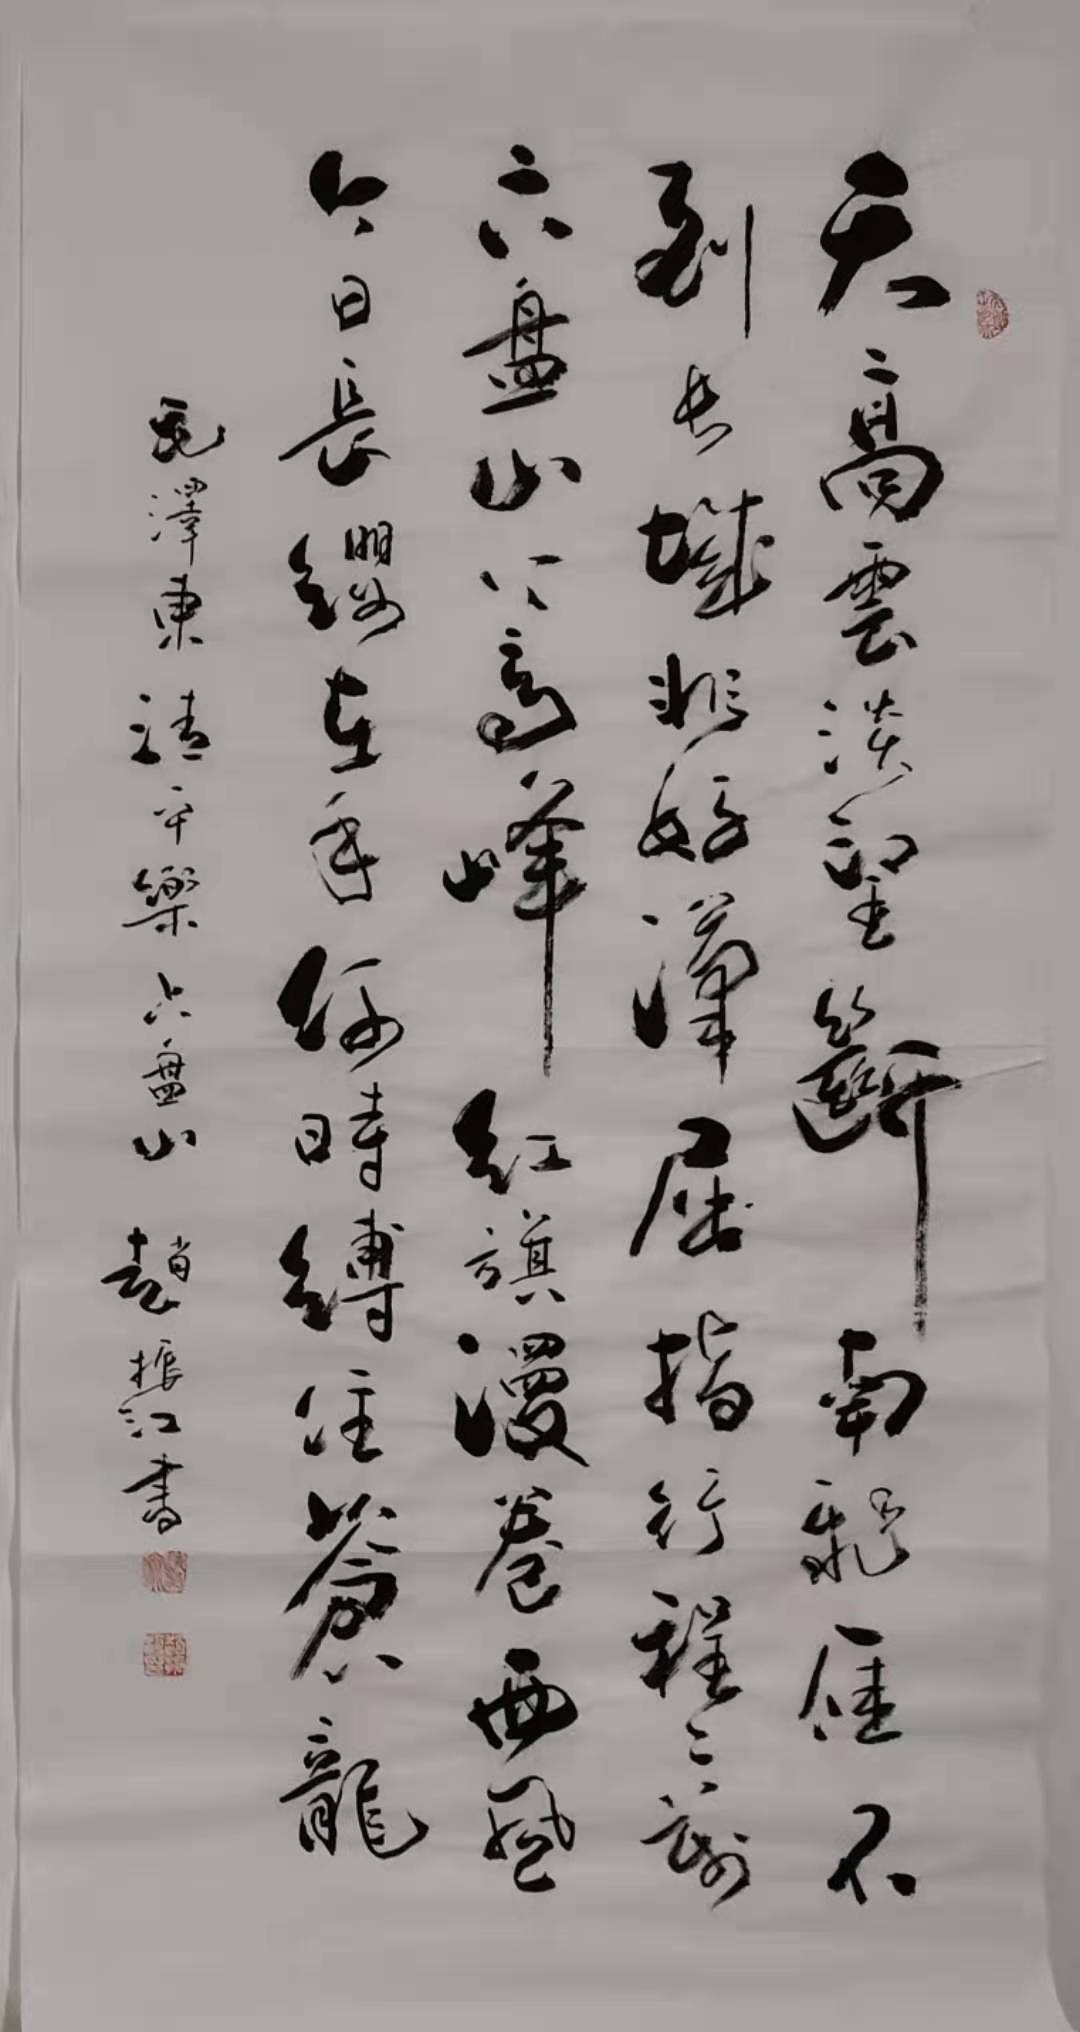 天高雲淡望斷南飛雁不
到长城非好漢屈指行程二萬
六盤山上高峰紅旗漫卷西風
今日長纓在手何時縛住蒼龍
毛澤東清平樂六盤山 趙振江書